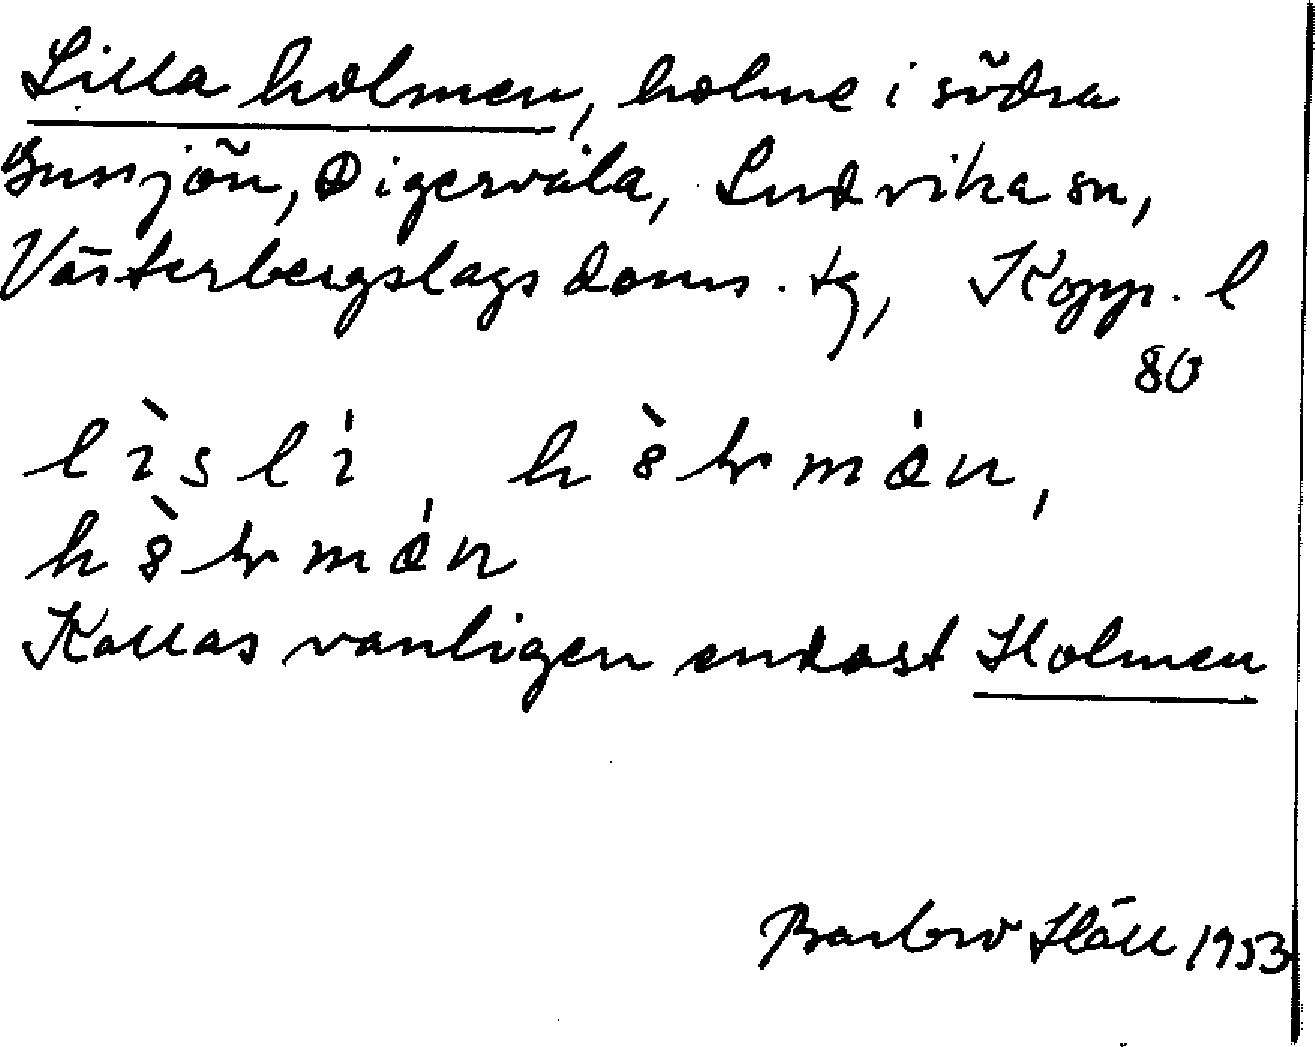 Lilla holmen, holme i södra
Gunsjön, Digervåla, Ludvika sn,
Västerbergslags doms. tg, Kopp. l
80
Kallas vanligen endast Holmen
Barbro Häll 1953